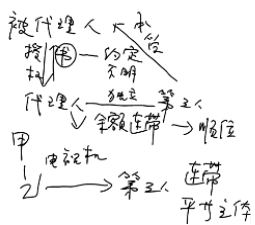 被代理人
本
授权 书 — 约定不明
代理人 —— 第三人
余额连带 → 顺位
甲
乙 电视机 → 第三人
连带
平等主体